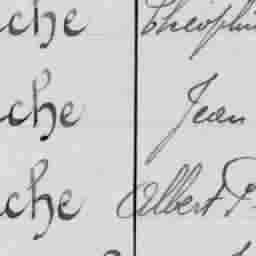 che Théophi
che Jean
che Albert P.